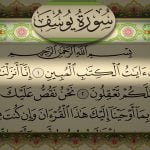 سُورَةُ يُوسُفَ
بِسْمِ ٱللَّهِ ٱلرَّحْمَٰنِ ٱلرَّحِيمِ
ءَايَٰتُ ٱلْكِتَٰبِ ٱلْمُبِينِ ١ إِنَّآ
تَعْقِلُونَ ٢ نَحْنُ نَقُصُّ عَلَيْكَ
بِمَآ أَوْحَيْنَآ إِلَيْكَ هَٰذَا ٱلْقُرْءَانَ وَإِن كُنتَ